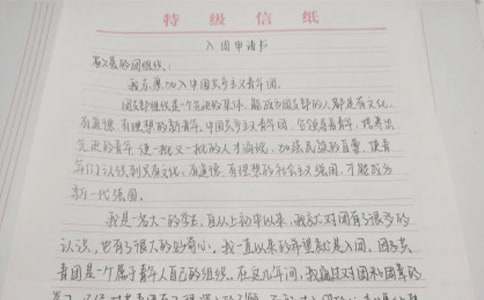 特级信纸
入团申请书
敬爱的团组织:
我志愿加入中国共产主义青年团。
团支部组织是一个先进的集体,能成为团支部的人都是有文化、
有道德、有理想的新青年。中国共产主义青年团,
先进的青年,使一批又一批的人才涌现,加强民族的自重,使青
年们认识到只有文化、有道德、有理想的社会主义强国,才能成为
新一代强国。
我是一名大一的学生,自从上初中以来,我就对团有了很多的
认识,也有了很大的好奇心。我一直以来的希望就是入团。因为共
青团是一个属于青年人自己的组织。在这几年间,我通过对团和团章的